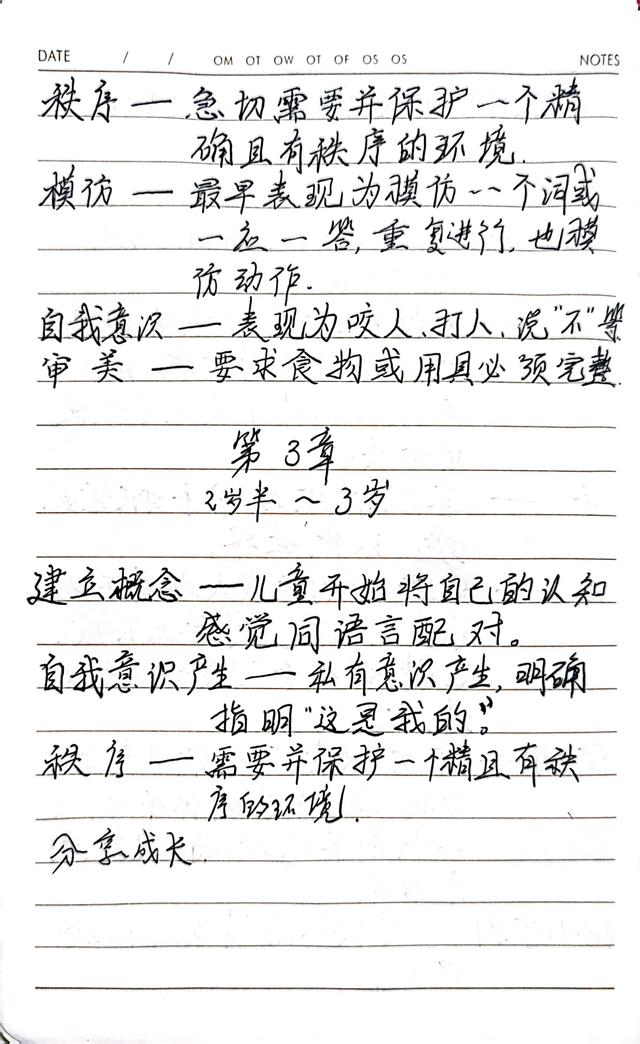 DATE / / OM OT OW OT OF OS OS NOTES
秩序 — 急切需要并保护一个精
确且有秩序的环境.
模仿 — 最早表现为模仿一个词或
一应一答,重复进行,也模
仿动作.
自我意识 — 表现为咬人、打人、说"不"等
审美 — 要求食物或用具必须完整.
第3章
2岁半~3岁
建立概念 — 儿童开始将自己的认知
感觉同语言配对。
自我意识产生 — 私有意识产生,明确
指明"这是我的"。
秩序 — 需要并保护一个精且有秩
序的环境.
分享成长